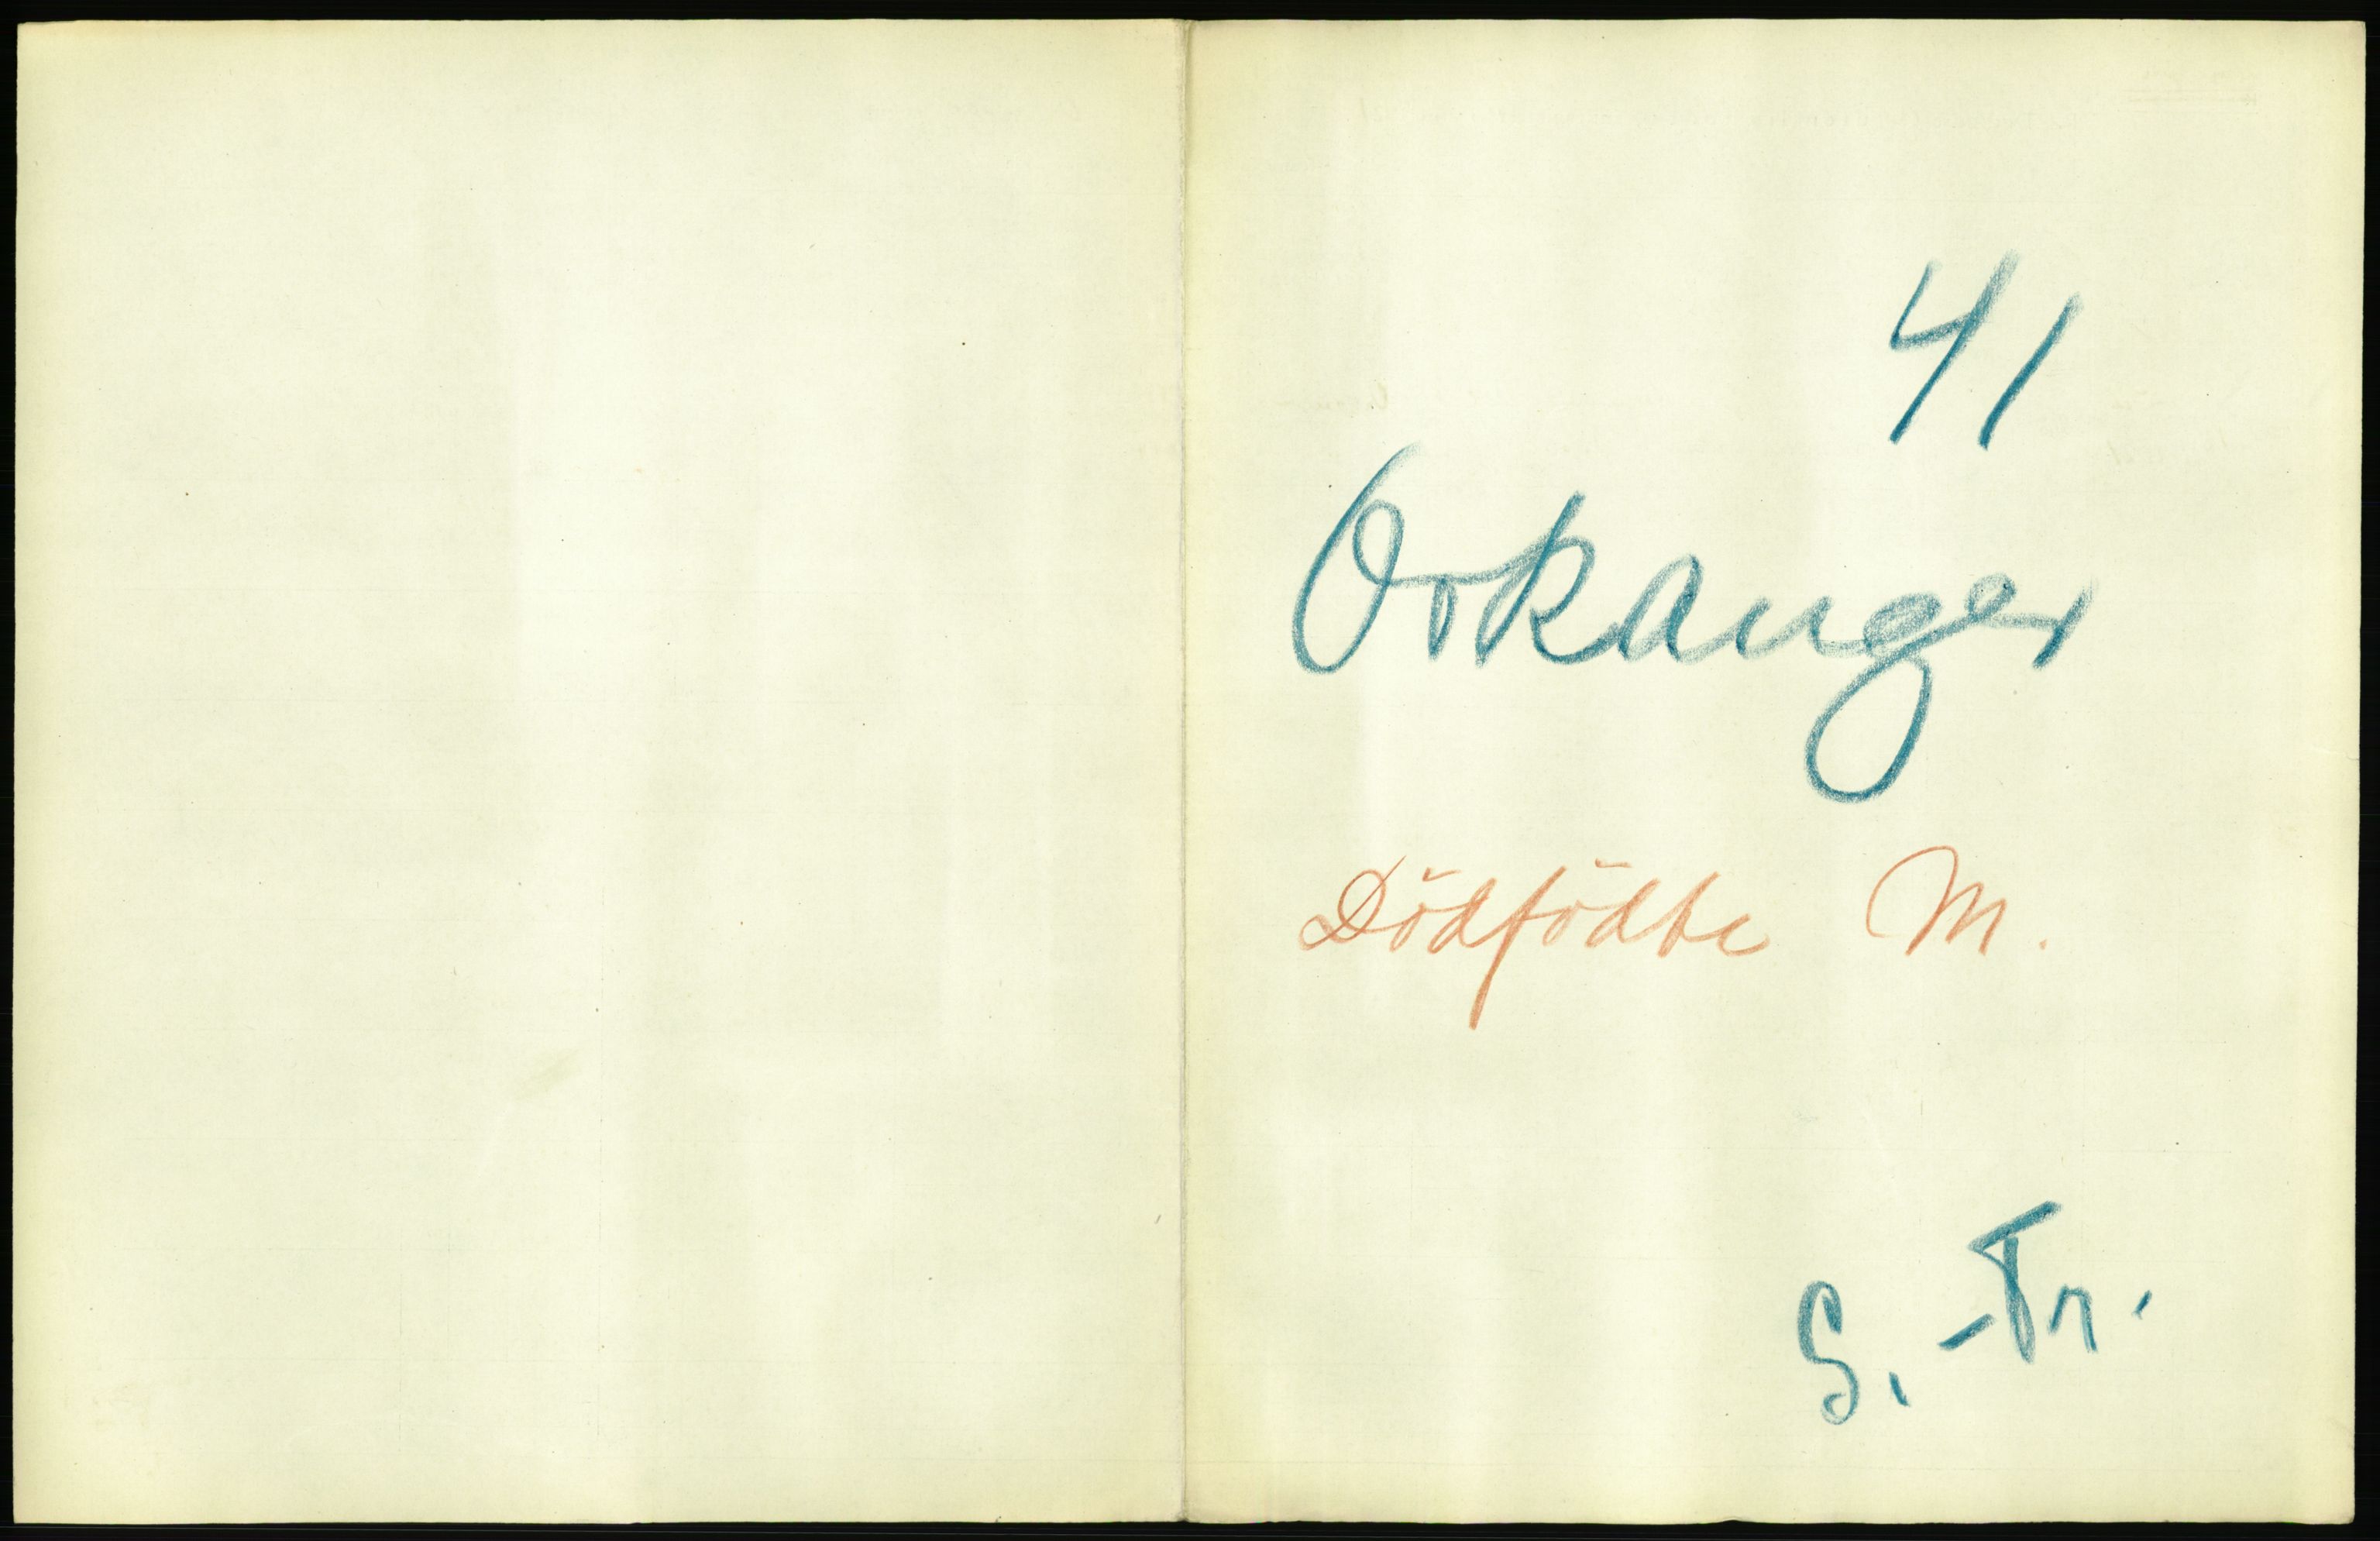 41
Orkanger
Dödfödte M.
S.-Tr.